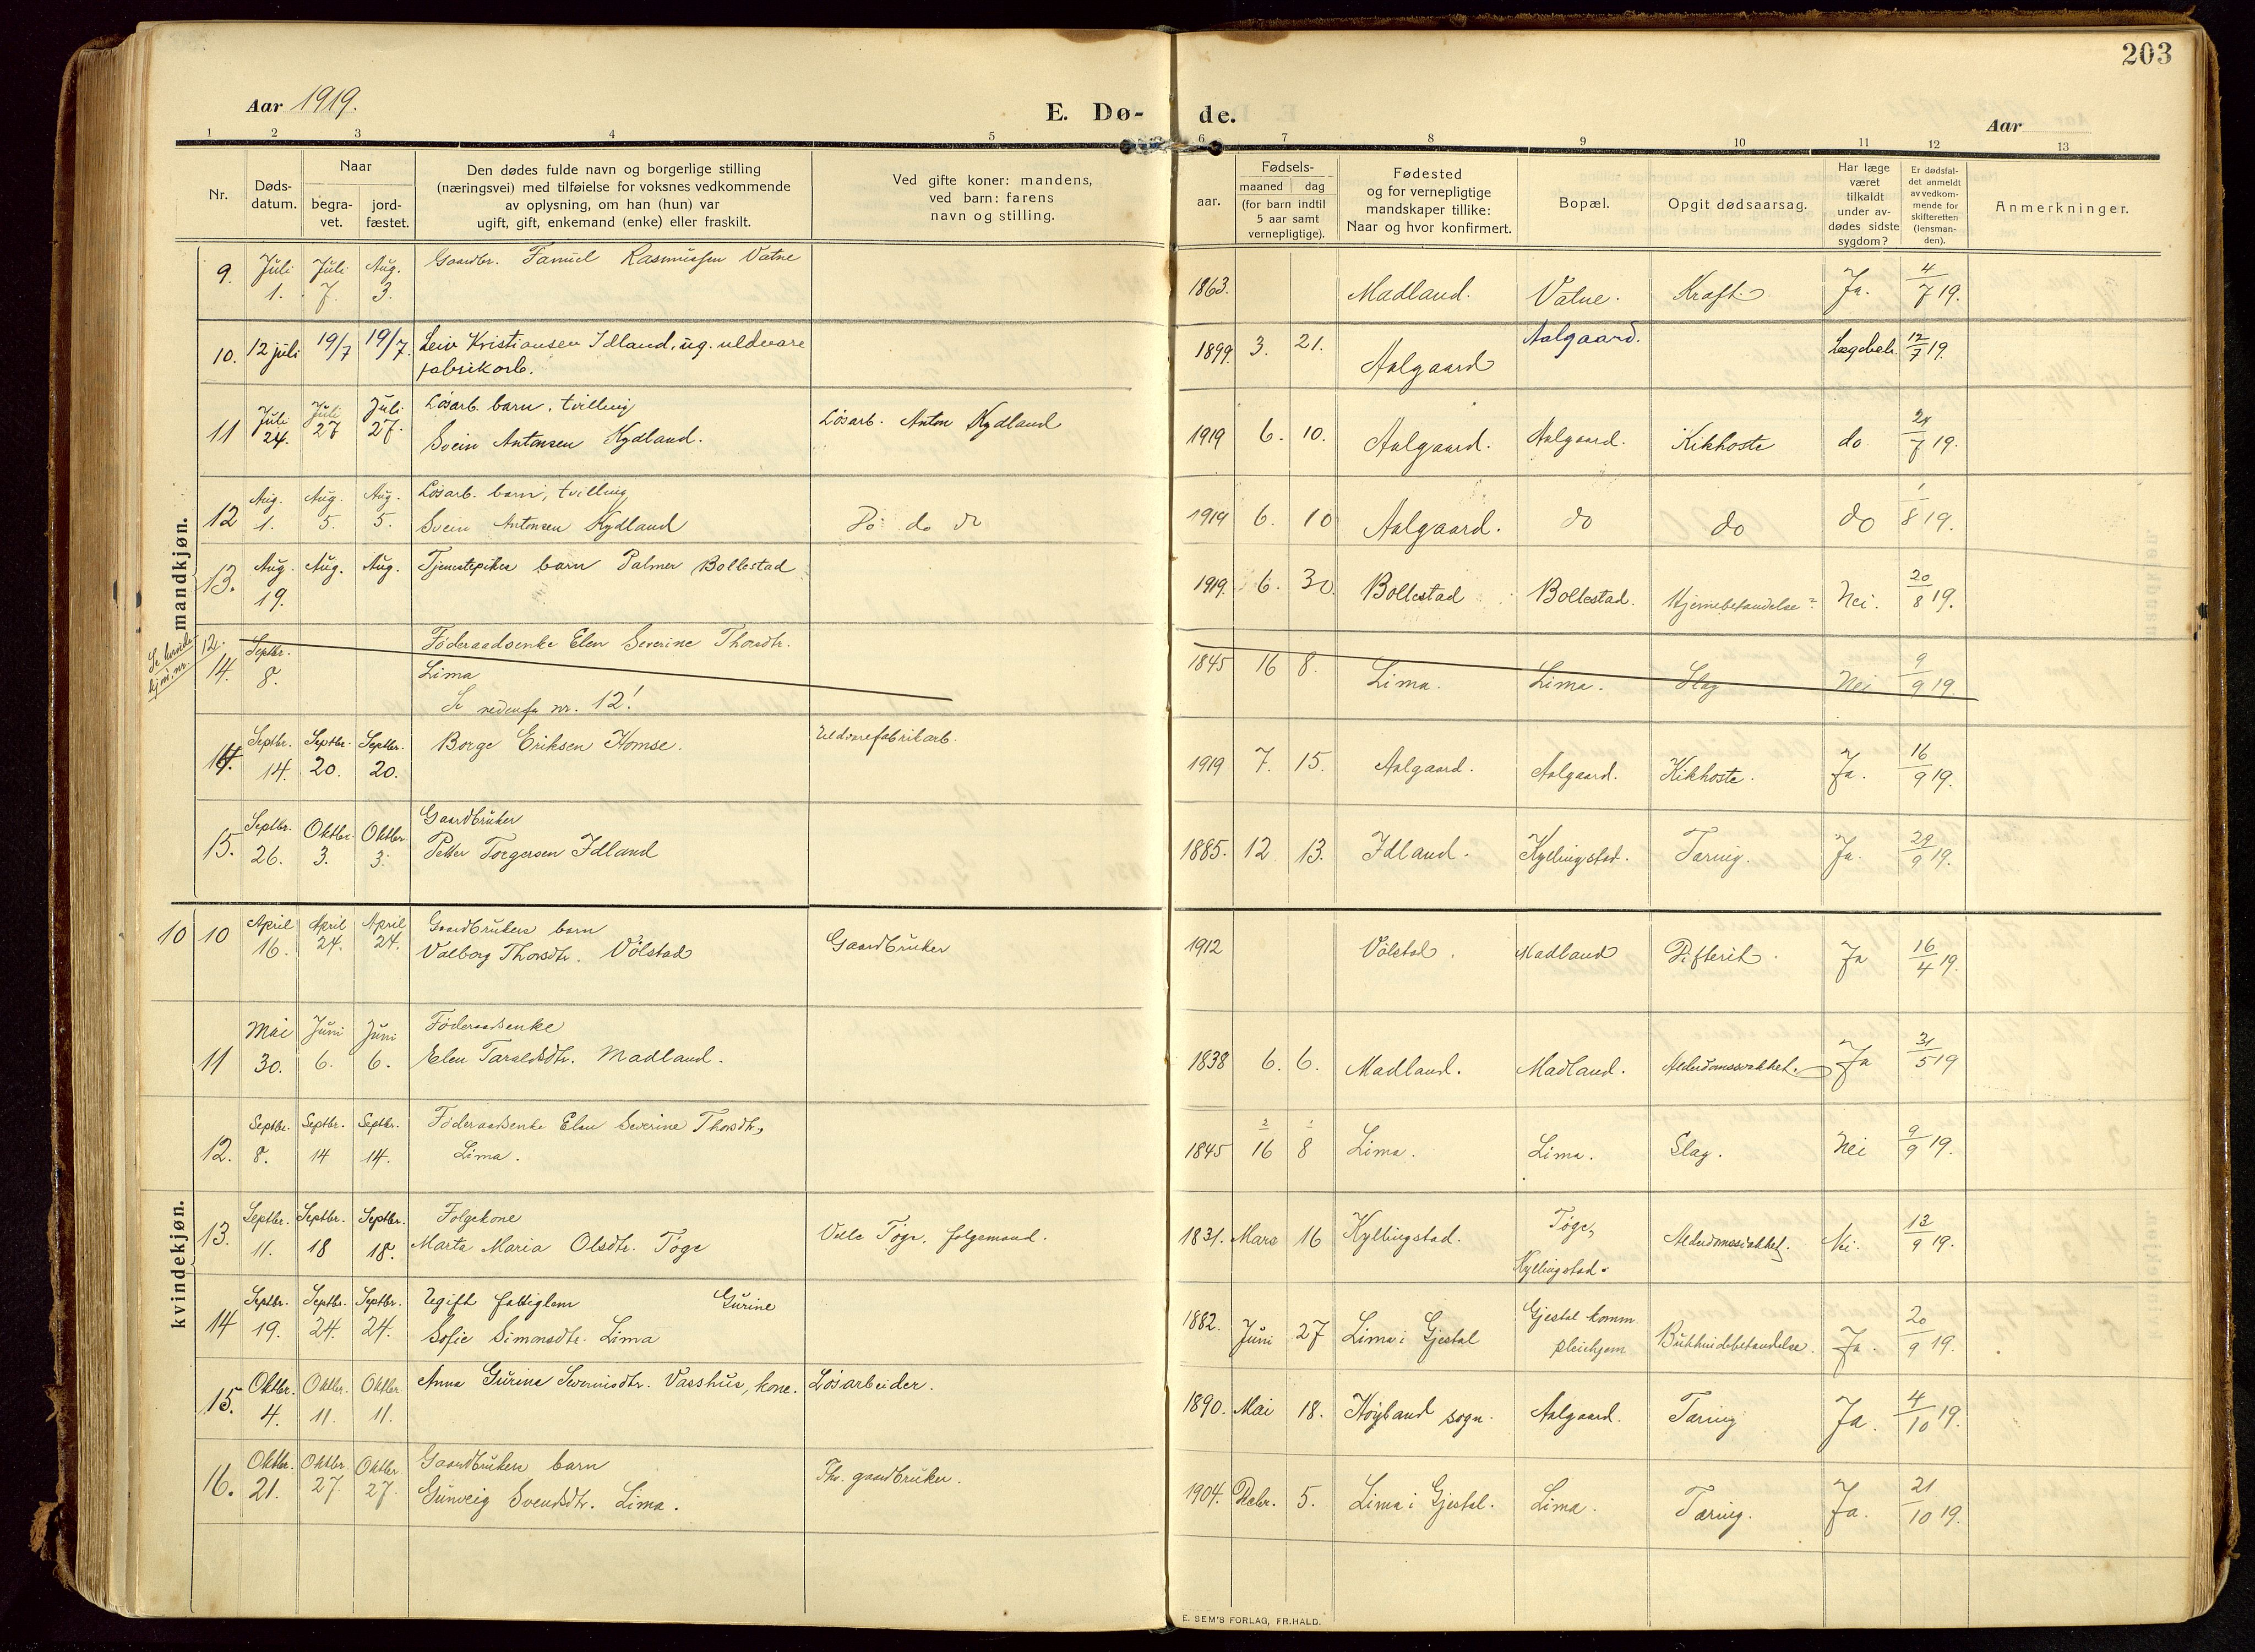 203
Aar 1919.
E. Dø-
de.
Aar
1 2 3 4 5 6 7 8 9 10 11 12 13
Nr.
Døds-
datum.
Naar
begra-
vet.
jord-
fæstet.
Den dødes fulde navn og borgerlige stilling
(næringsvei) med tilføielse for voksnes vedkommende
av oplysning, om han (hun) var
ugift, gift, enkemand (enke) eller fraskilt.
Ved gifte koner: mandens,
ved barn: farens
navn og stilling.
aar.
Fødsels-
maaned dag
(for barn indtil
5 aar samt
vernepligtige).
Fødested
og for vernepligtige
mandskaper tillike:
Naar og hvor konfirmert.
Bopæl.
Opgit dødsaarsag.
Har læge
været
tilkaldt
under av-
dødes sidste
sygdom?
Er dødsfal-
det anmeldt
av vedkom-
mende for
skifteretten
(lensman-
den).
Anmerkninger.
mandkjøn.
9. Juli 1. Juli 7. Aug. 3. Gaardbr. Rasmussen Vatne 1863. Madland. Vatne. Kræft. Ja. 4/7 19.
10. 12 juli 19/7 19/7. Leiv Kristiansen Idland, ug. uldvare
fabrikarb. 1899. 3. 21. Aalgaard Aalgaard. Lægebeh. 12/7 19.
11 Juli 24. Juli 27 Juli 27. Løsarb. barn, tvilling
Svein Antonsen Kydland. Løsarb. Anton Kydland 1919 6. 10. Aalgaard. Aalgaard. Kikhoste do 24/7 19.
12 Aug. 1. Aug. 5. Aug. 5. Løsarb. barn, tvilling
Svein Antonsen Kydland Do do do 1919 6. 10 Aalgaard. do do do 1/8 19.
13. Aug. 19. Aug. Aug. Tjenestepikes barn Palmer Bollestad 1919. 6. 30. Bollestad Bollestad. Hjernebetændelse Nei. 20/8 19.
Se
kjøn. nr. 12.
14. Septbr. 8. Føderaadsenke Elen Severine Thorsdtr.
Lima
Se nedenfor nr. 12! 1845 16 8. Lima. Lima. Slag Nei 9/9 19.
14. Septbr. 14. Septbr. 20. Septbr. 20. Borge Eriksen Homse. Uldvarefabrikarb. 1919 7. 15. Aalgaard. Aalgaard. Kikhoste. Ja. 16/9 19.
15. Septbr. 26. Oktbr. 3. Oktbr 3. Gaardbruker
Petter Torgersen Idland 1885. 12 13. Idland. Kyllingstad. Tæring. Ja. 29/9 19.
kvindekjøn.
10 10 April 16. April 24. April 24. Gaardbrukers barn
Valborg Thorsdtr. Vølstad Gaardbruker 1912 Vølstad. Madland Difterit. Ja 16/4 19.
11 Mai 30. Juni 6. Juni 6. Føderaadsenke
Elen Taraldsdtr. Madland. 1838 6. 6. Madland. Madland. Alderdomssvakhet. Ja 31/5 19
12. Septbr. 8. Septbr. 14 Septbr. 14. Føderaadsenke Elen Severine Thorsdtr,
Lima. 1845 2 16 1 8 Lima. Lima. Slag. Nei 9/9 19.
13. Septbr. 11. Septbr. 18 Septbr. 18. Folgekone
Marta Maria Olsdtr. Tøge Tøge, folgemand. 1831. Mars 16 Kyllingstad. Tøge,
Kyllingstad. Alderdomssvakhet. Nei. 13/9 19.
14 Septbr. 19. Septbr. 24. Septbr. 24. Ugift fattiglem Gurine
Sofie Simonsdtr. Lima 1882. Juni 27 Lima i Gjestal Gjestal komm.
pleiehjem Bukhindebetændelse. Ja. 20/9 19.
15. Oktbr. 4. Oktbr. 11. Oktbr. 11. Anna Gurine Severinsdtr. Vasshus, kone. Løsarbeider. 1890. Mai 18. Høyland sogn. Aalgaard. Tæring Ja. 4/10 19.
16. Oktbr. 21. Oktbr. 27. Oktbr. 27. Gaardbrukers barn
Gunveig Svendsdtr. Lima. gaardbruker. 1904. 5. Lima i Gjestal. Lima. Tæring. Ja. 21/10 19.
E. SEM'S FORLAG, FR.HALD.